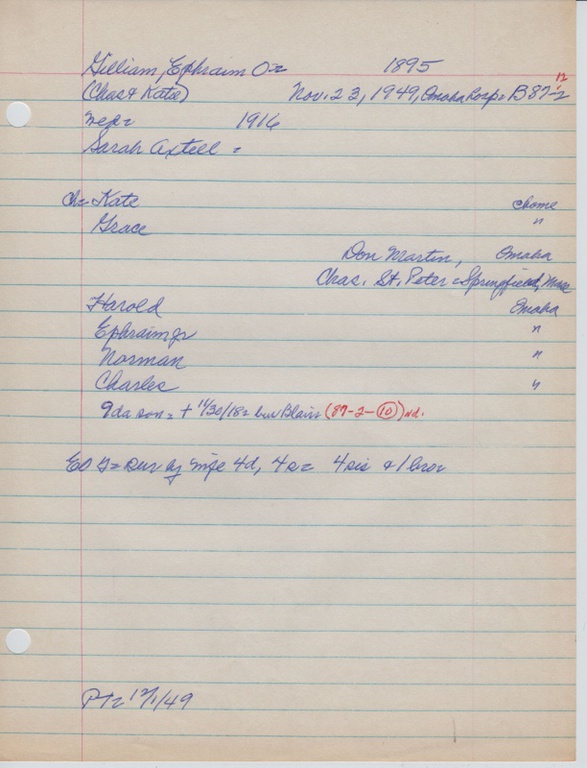 Gilliam, Ephraim O= 1895
(Chas & Katie) Nov. 23, 1949, Omaha hosp= B87-2 12
Neg= 1916
Sarah Axtell =
ch= Kate @home
Grace "
Don Martin, Omaha
Chas. St. Peter = Springfield, Mass
Harold Omaha
Ephraim jr "
Norman "
Charles "
9da son = + 11/30/18= bur Blair (87-2-10) nd.
EO G= sur by wife 4d, 4s= 4 sis & 1 bro=
PT= 12/1/49